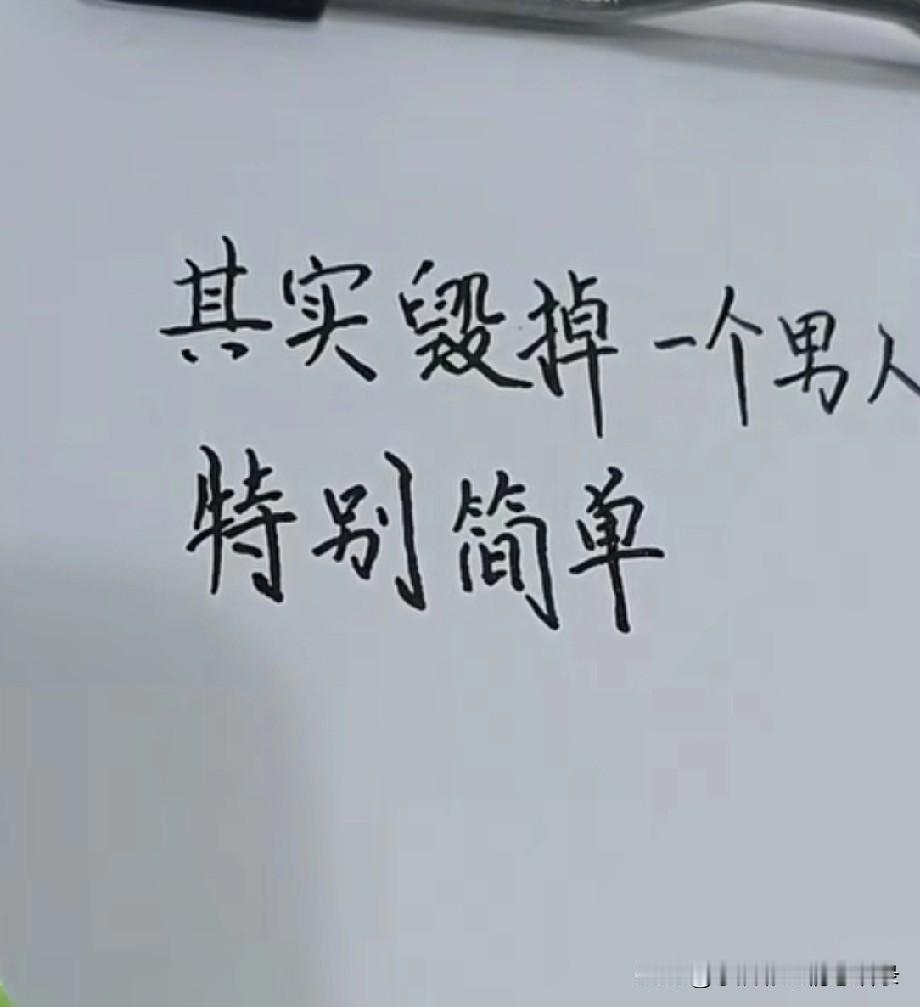 其实毁掉一个男人
特别简单